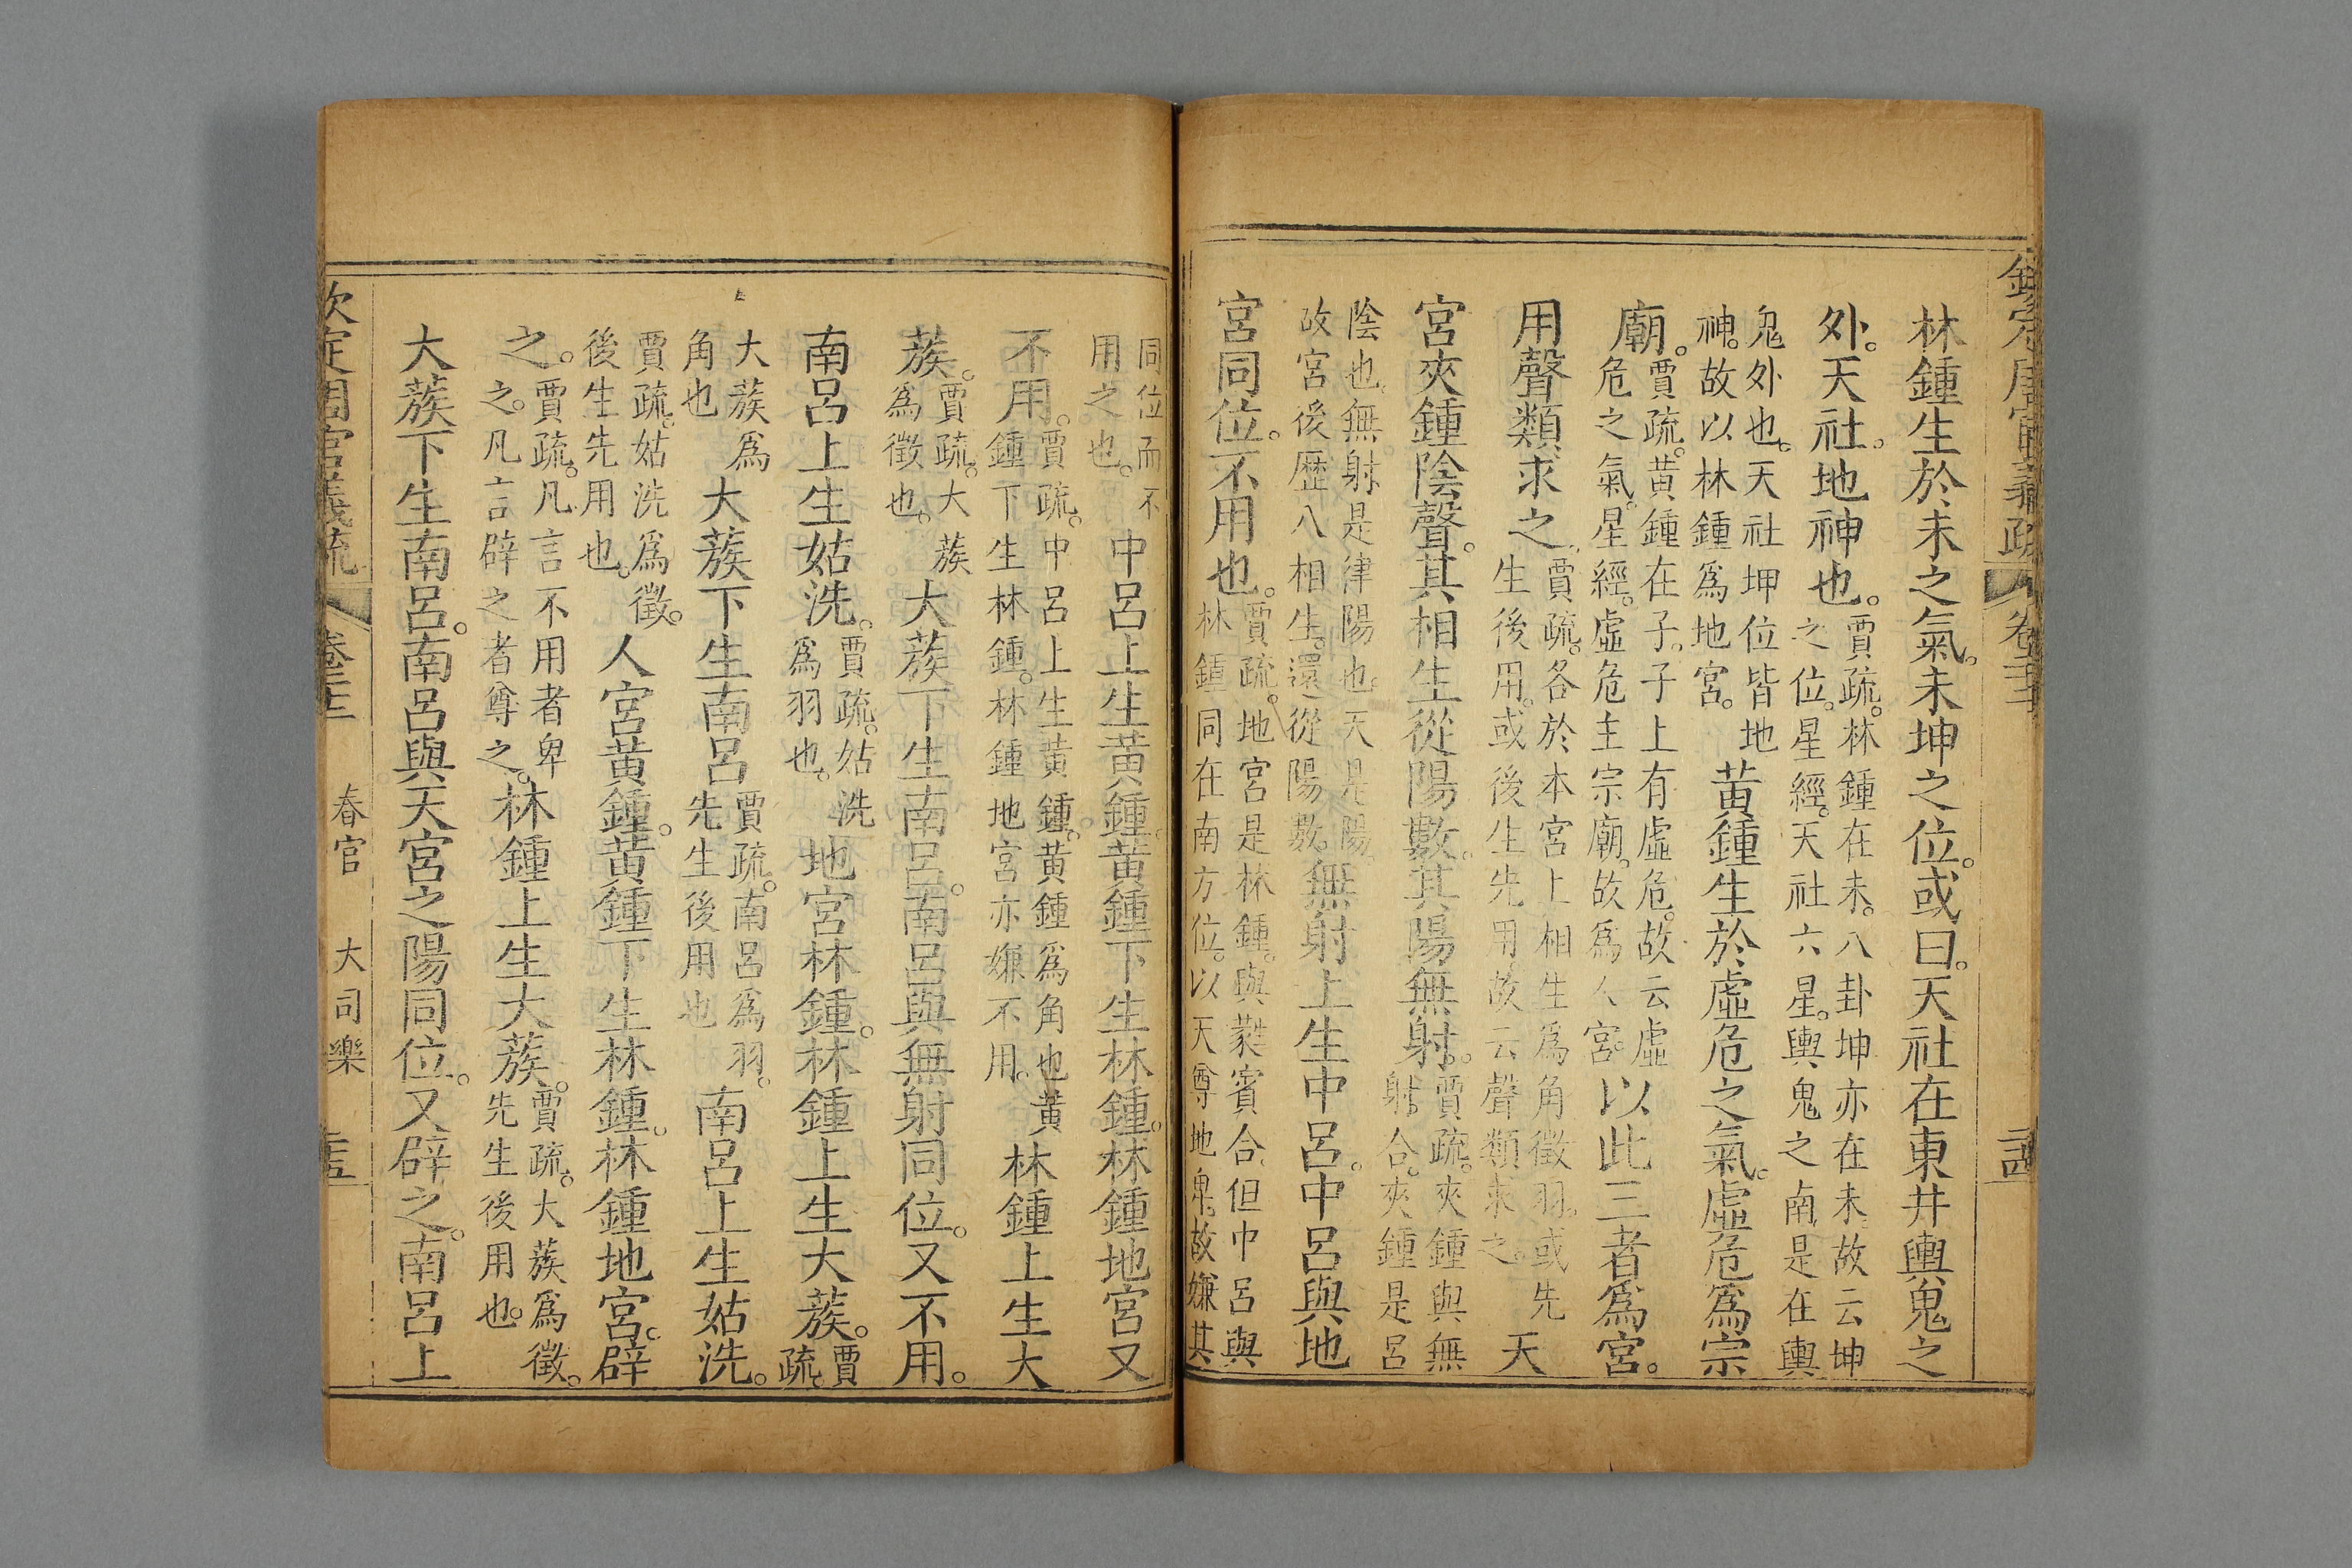 欽定周官義疏 卷二十二
林鍾生於未之氣。未坤之位。或曰。天社在東井輿鬼之
外。天社。地神也。賈疏。林鍾在未。八卦坤亦在未。故云坤之位。星經。天社六星。輿鬼之南。是在輿
鬼外也。天社坤位皆地神。故以林鍾爲地宮。黄鍾生於虛危之氣。虛危爲宗
廟。賈疏。黄鍾在子。子上有虛危。故云虛危之氣。星經。虛危主宗廟。故爲人宮。以此三者爲宮。
用聲類求之。賈疏。各於本宮上相生爲角徵羽。或先生後用。或後生先用。故云聲類求之。天
宮夾鍾陰聲。其相生從陽數。其陽無射。賈疏。夾鍾與無射合。夾鍾是呂
陰也。無射是律陽也。天是陽。故宮後歷八相生。還從陽數。無射上生中呂。中呂與地
宮同位。不用也。賈疏。地宮是林鍾。與蕤賓合。但中呂與林鍾同在南方位。以天尊地卑。故嫌其
同位而不用之也。中呂上生黄鍾。黄鍾下生林鍾。林鍾地宮又
不用。賈疏。中呂上生黄鍾。黄鍾爲角也黄鍾下生林鍾。林鍾地宮亦嫌不用。林鍾上生大
蔟。賈疏。大蔟爲徵也。大蔟下生南呂。南呂與無射同位。又不用。
南呂上生姑洗。賈疏。姑洗爲羽也。地宮林鍾。林鍾上生大蔟。賈疏。
大蔟爲角也大蔟下生南呂賈疏。南呂爲羽。先生後用也南呂上生姑洗。
賈疏。姑洗爲徵。後生先用也。人宮黄鍾。黄鍾下生林鍾。林鍾地宮。辟
之。賈疏。凡言不用者卑之。凡言辟之者尊之。林鍾上生大蔟。賈疏。大蔟爲徵。先生後用也。
大蔟下生南呂。南呂與天宮之陽同位。又辟之。南呂上
欽定周官義疏 卷二十二 春官 大司樂